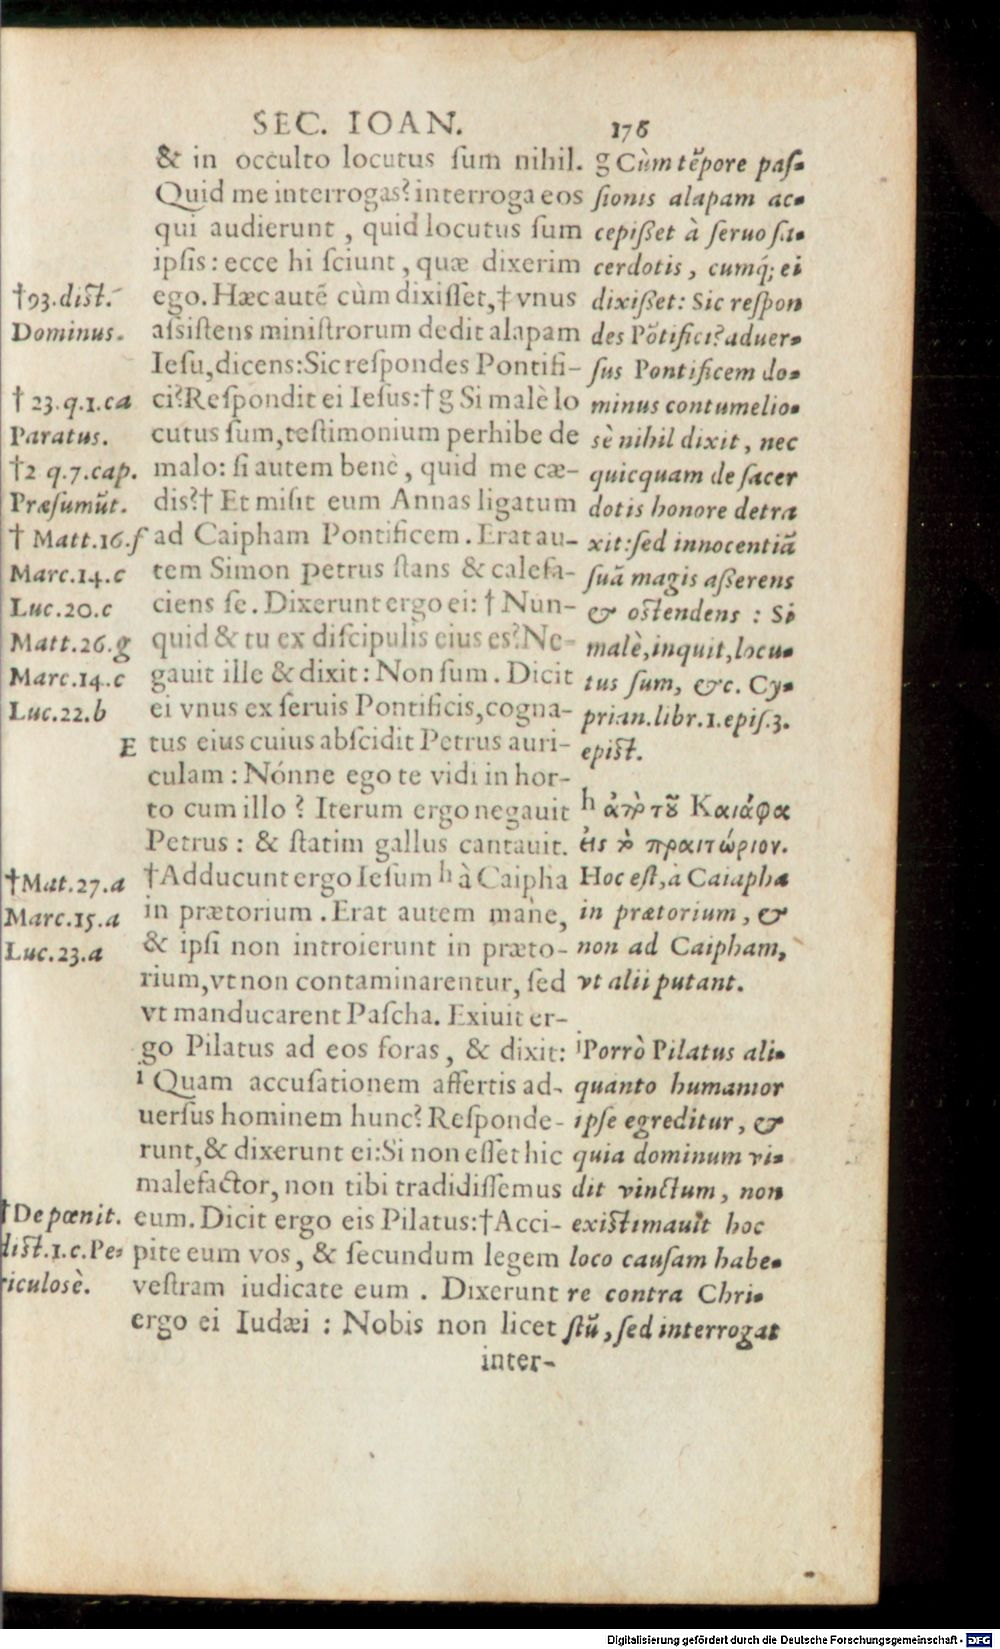 SEC. IOAN. 176
& in occulto locutus ſum nihil.
Quid me interrogas? interroga eos
qui audierunt, quid locutus ſum
ipſis: ecce hi ſciunt, quæ dixerim
ego. Hæc autẽ cùm dixiſſet, † vnus
aſsiſtens miniſtrorum dedit alapam
Ieſu, dicens: Sic reſpondes Pontifi-
ci? Reſpondit ei Ieſus: † g Si malè lo
cutus ſum, teſtimonium perhibe de
malo: ſi autem benè, quid me cæ-
dis? † Et miſit eum Annas ligatum
ad Caipham Pontificem. Erat au-
tem Simon petrus ſtans & calefa-
ciens ſe. Dixerunt ergo ei: † Nun-
quid & tu ex diſcipulis eius es? Ne-
gauit ille & dixit: Non ſum. Dicit
ei vnus ex ſeruis Pontificis, cogna-
E tus eius cuius abſcidit Petrus auri-
culam: Nónne ego te vidi in hor-
to cum illo? Iterum ergo negauit
Petrus: & ſtatim gallus cantauit.
† Adducunt ergo Ieſum h à Caipha
in prætorium. Erat autem mane,
& ipſi non introierunt in præto-
rium, vt non contaminarentur, ſed
vt manducarent Paſcha. Exiuit er-
go Pilatus ad eos foras, & dixit:
i Quam accuſationem affertis ad-
uerſus hominem hunc? Reſponde-
runt, & dixerunt ei: Si non eſſet hic
malefactor, non tibi tradidiſſemus
eum. Dicit ergo eis Pilatus: † Acci-
pite eum vos, & ſecundum legem
veſtram iudicate eum. Dixerunt
ergo ei Iudæi: Nobis non licet
inter-
† 93. diſt.
Dominus.
† 23. q. 1. ca
Paratus.
† 2 q. 7. cap.
Præſumũt.
† Matt. 16. f
Marc. 14. c
Luc. 20. c
Matt. 26. g
Marc. 14. c
Luc. 22. b
† Mat. 27. a
Marc. 15. a
Luc. 23. a
† De pœnit.
diſt. 1. c. Pe-
riculosè.
g Cùm tẽpore paſ-
ſionis alapam ac-
cepiſſet à ſeruo ſa-
cerdotis, cumq́; ei
dixiſſet: Sic reſpon
des Põtifici? aduer-
ſus Pontificem do-
minus contumelio-
sè nihil dixit, nec
quicquam de ſacer
dotis honore detra
xit: ſed innocentiã
ſuã magis aſſerens
& oſtendens: Si
malè, inquit, locu-
tus ſum, &c. Cy-
prian. libr. 1. epiſ. 3.
epiſt.
h ἀπὸ τοῦ Καιάφα
εἰς τὸ πραιτώριον.
Hoc eſt, à Caiapha
in prætorium, &
non ad Caipham,
vt alii putant.
i Porrò Pilatus ali-
quanto humanior
ipſe egreditur, &
quia dominum vi-
dit vinctum, non
exiſtimauit hoc
loco cauſam habe-
re contra Chri-
ſtũ, ſed interrogat
Digitalisierung gefördert durch die Deutsche Forschungsgemeinschaft - DFG